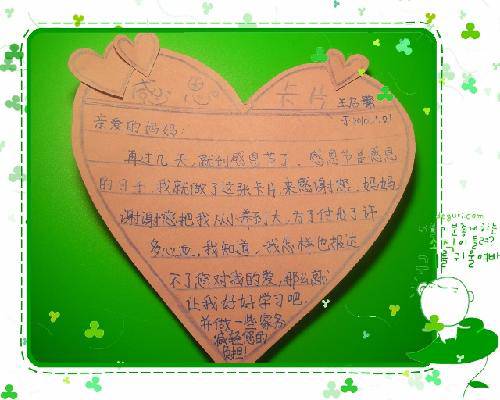 感恩 卡片
亲爱的妈妈:
再过几天,就到感恩节了,感恩节是感恩
的日子,我就做了这张卡片来感谢您,妈妈,
谢谢您把我从小养到大,为了付出了许
多心血,我知道,我怎样也报达
不了您对我的爱,那么就
让我好好学习吧,
并做一些家务
减轻您的
负担!